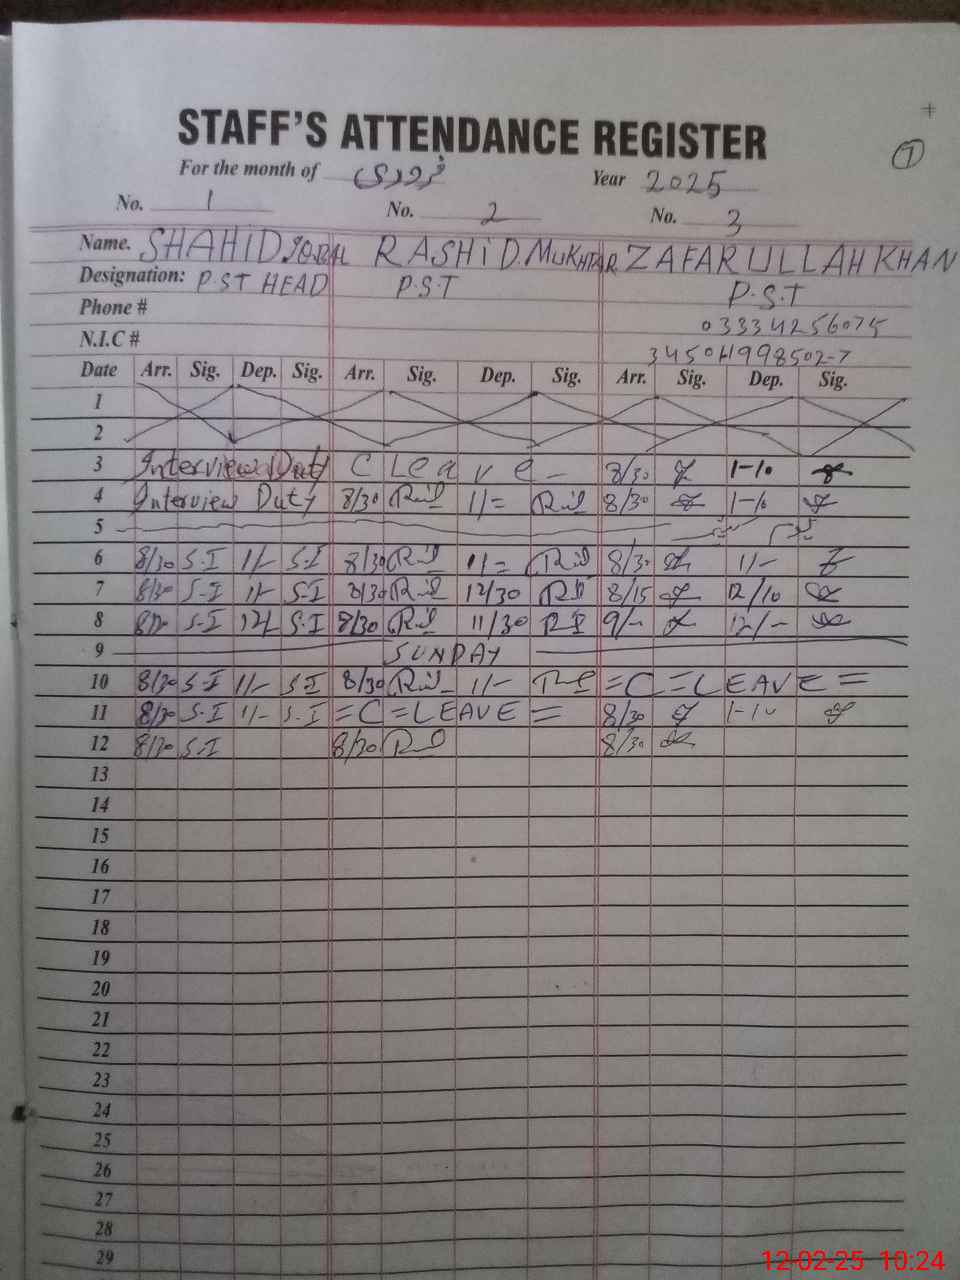 STAFF'S ATTENDANCE REGISTER
1
For the month of فروری Year 2025
No. 1 No. 2 No. 3
Name. SHAHID IQBAL RASHID MUKHTAR ZAFARULLAH KHAN
Designation: P.ST HEAD P.S.T P.S.T
Phone # 03334256075
N.I.C #
Date Arr. Sig. Dep. Sig. Arr. Sig. Dep. Sig. Arr. Sig. Dep. Sig.
1
2
3 Interview Duty C Leave 8/30 1-10
4 Interview Duty 8/30 11/= 8/30 1-10
5
6 8/30 S.I 11/- S.I 8/30 11/= 8/30 11/-
7 8/30 S.I 11/- S.I 8/30 12/30 8/15 12/10
8 8/30 S.I 12/- S.I 8/30 11/30 9/- 12/-
9 SUNDAY
10 8/30 S.I 11/- S.I 8/30 11/- =C=LEAVE=
11 8/30 S.I 11/- S.I =C=LEAVE= 8/30 1-10
12 8/30 S.I 8/30 8/30
13
14
15
16
17
18
19
20
21
22
23
24
25
26
27
28
29
12-02-25 10:24